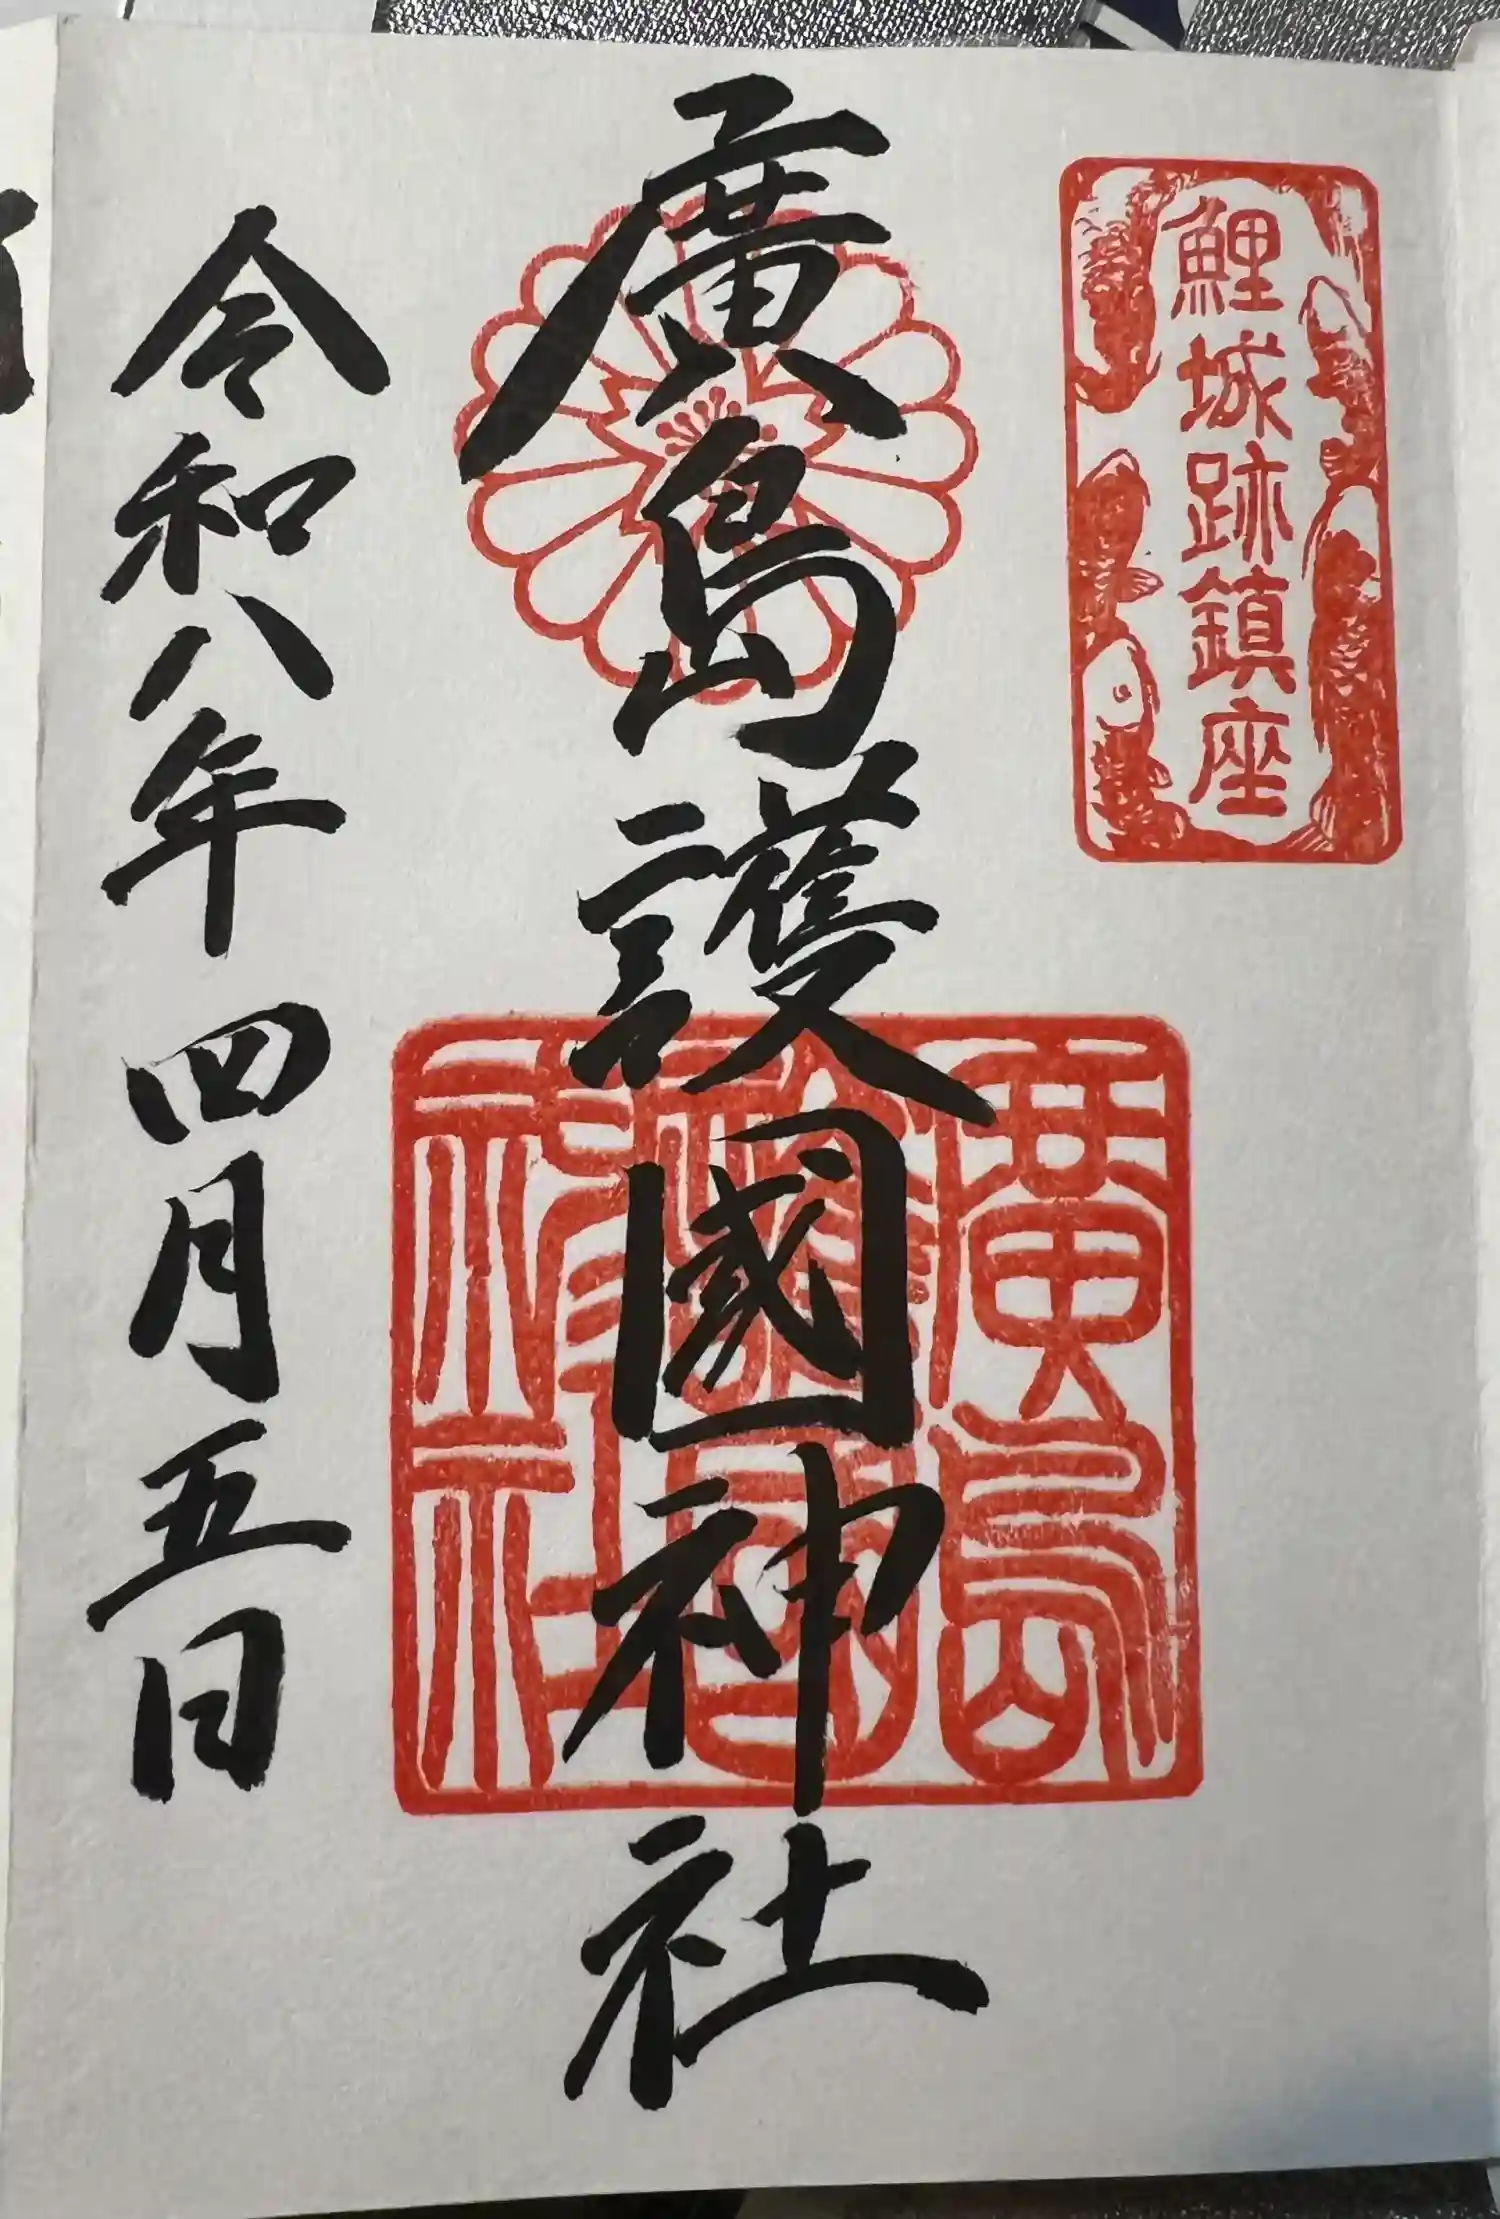 鯉城跡鎮座
廣島護國神社
廣島護國神社
令和八年四月五日